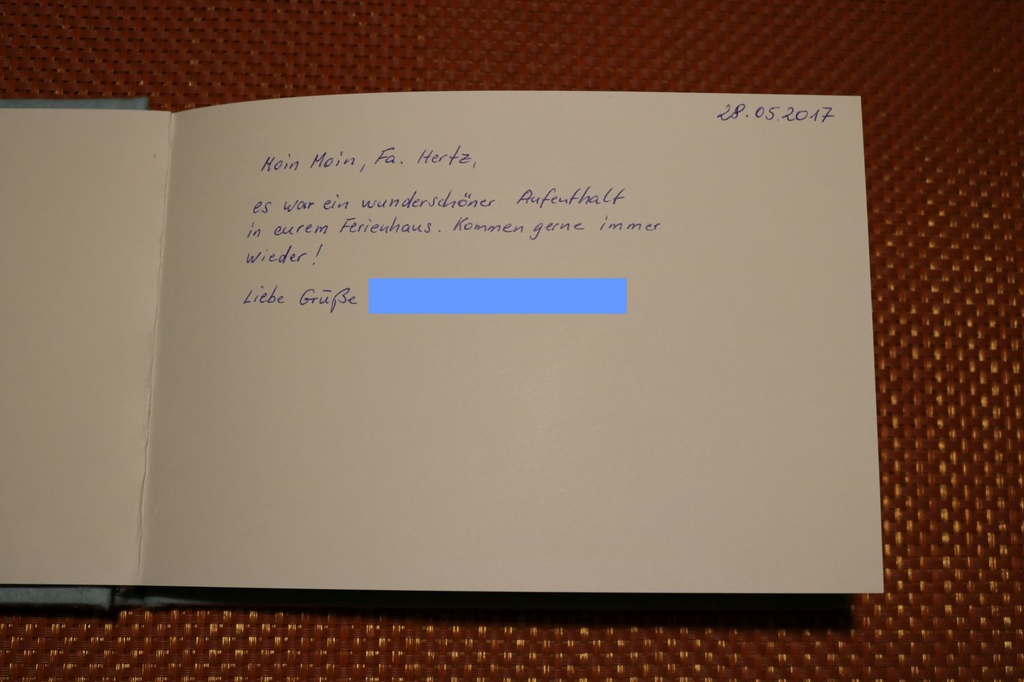 28.05.2017
Moin Moin, Fa. Hertz,
es war ein wunderschöner Aufenthalt
in eurem Ferienhaus. Kommen gerne immer
wieder!
Liebe Grüße